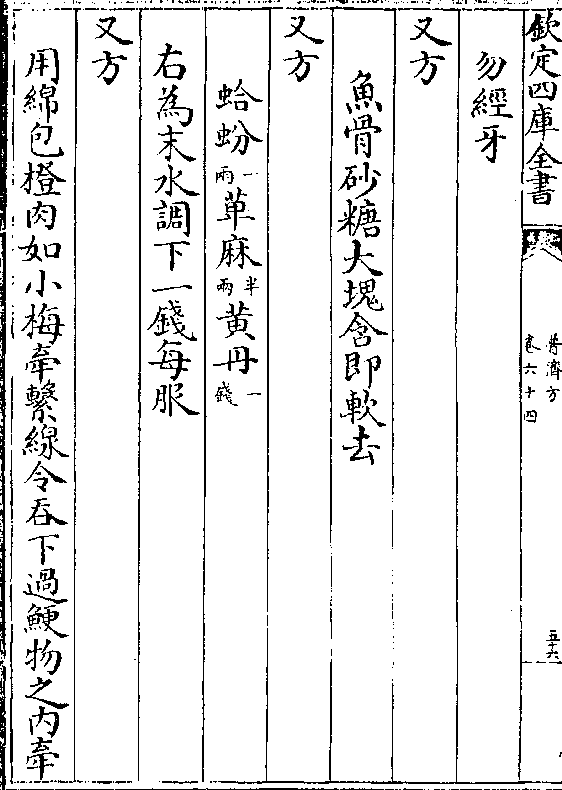 欽定四庫全書
普濟方
卷六十四
五十六
勿經牙
又方
魚骨砂糖大塊含即軟去
又方
蛤蚡一兩萆麻半兩黄丹一錢
右為末水調下一錢每服
又方
用綿包橙肉如小梅牽繫線令吞下過鯁物之内牽